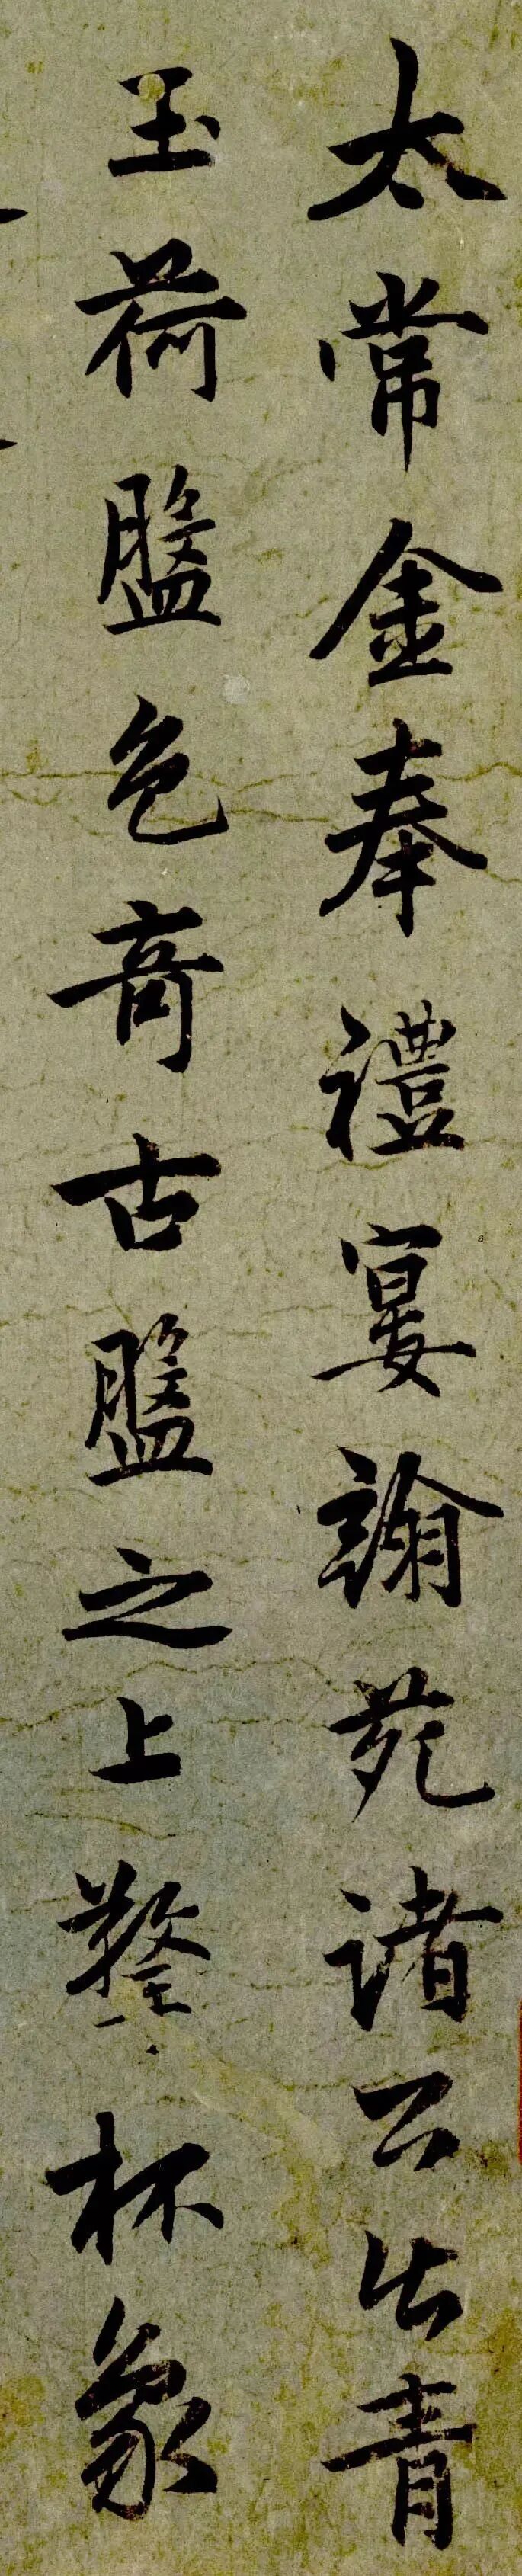 太常金奉禮宴翰苑諸公出青
玉荷盤色竒古盤之上杯象